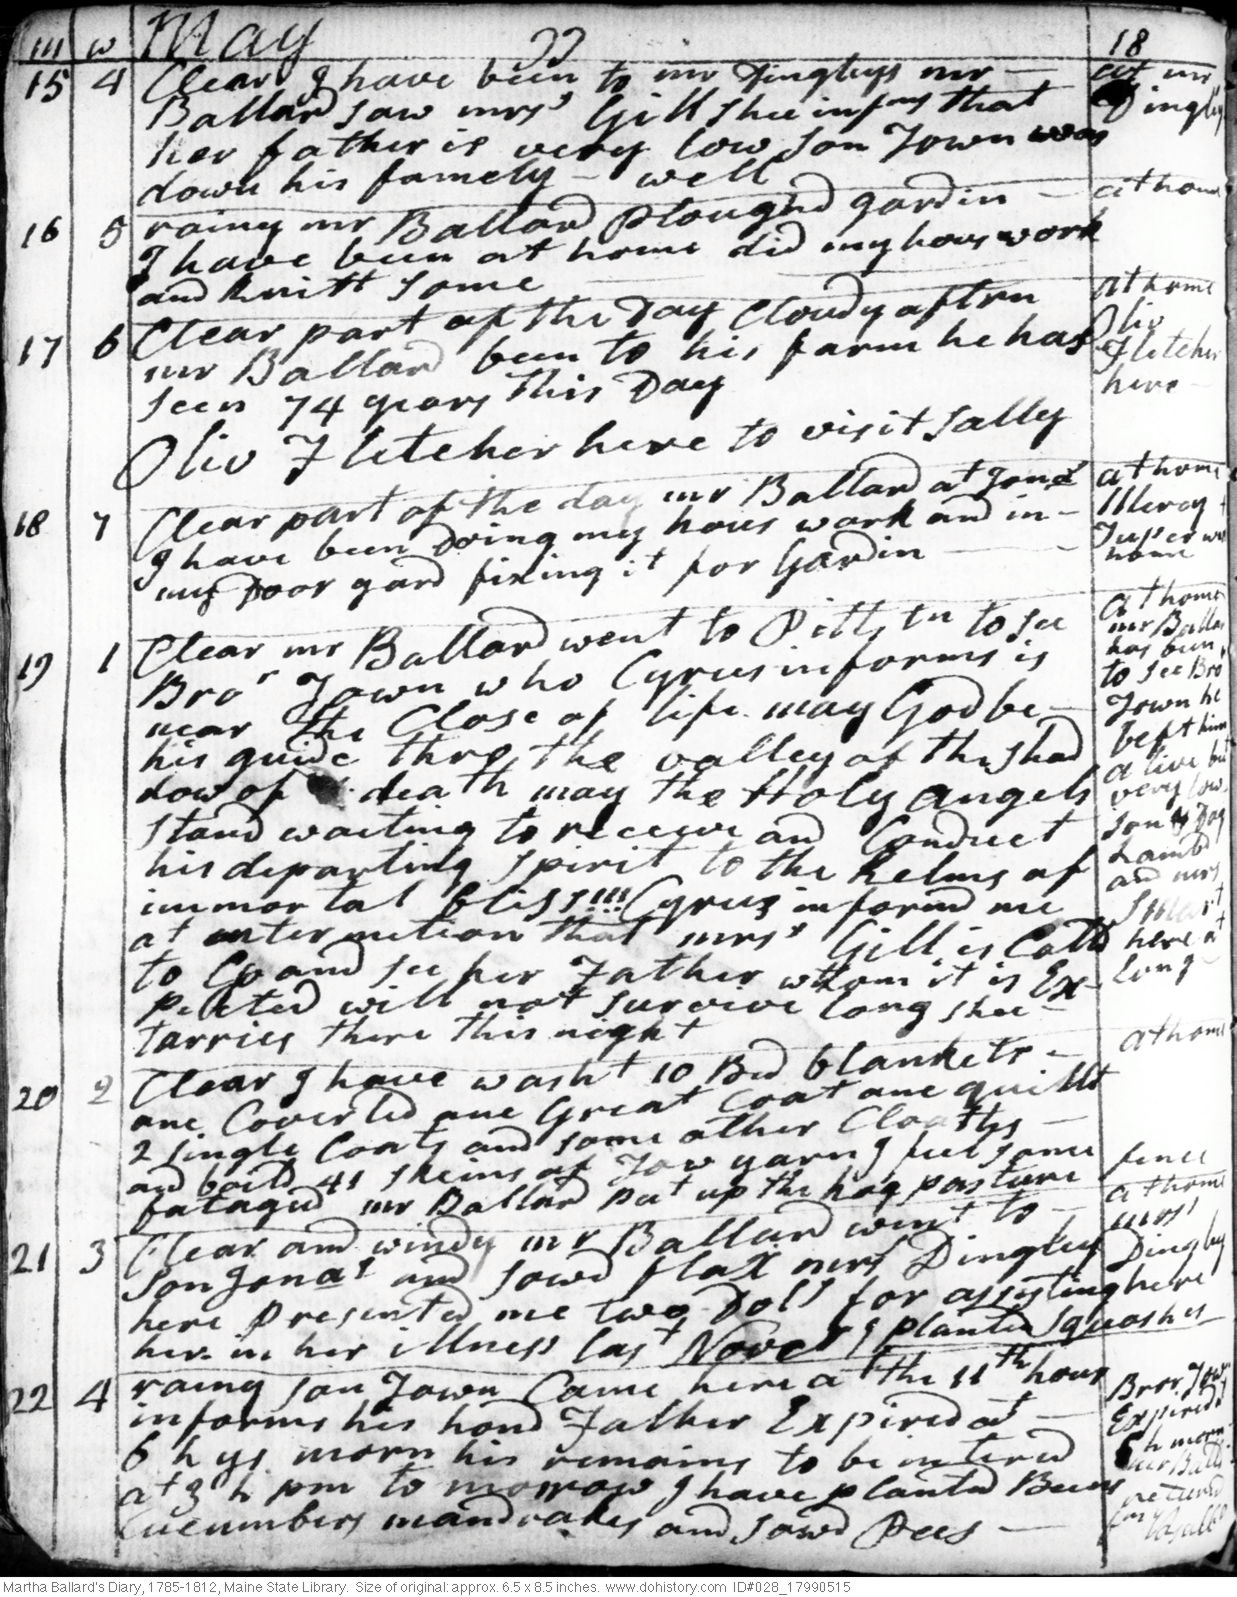 m w May 99 18
15 4 Clear I have been to mr Dinglys mr - at mr
Ballard saw mrs Gill shee infms that Dingly
her father is very low son Town was
down his famely - well
at home
16 5 rainy mr Ballard Plough'd gardin -
I have been at home did my hous work
and knitt some
at home
17 6 Clear part of the Day Cloudy aftrn
Oliv
mr Ballard been to his farm he has
Fletcher
seen 74 years this Day
here -
Oliv Fletcher here to visit Sally
18 7 Clear part of the day mr Ballard at Jonas
at home
I have been Doing my hous work and in -
my Door yard fixing it for Gardin
home
19 1 Clear mr Ballard went to Pittstn to see
at home
mr Ballad
Bror Town who Cyrus informs is
has been
to see Bror
near the Close of life may God be -
Town he
his guide thro the valley of the shad
left him
dow of death may the Holy angels
alive but
very low
stand waiting to receive and Conduct
son
his departing spirit to the helms of
Lambd
and mrs
immortal bliss!!! Cyrus informd me
at intermition that mrss Gill is Calld
here at
to Go and see her Father whom it is Ex-
long
pected will not survive long shee -
tarries there this night
20 2 Clear I have washt 10 Bed blankets -
at home
one Coverled one Great Coat one quillt
2 single Coats and some other Cloaths -
and boild 41 skeins of Tow yarn I feel some
fatagud mr Ballard put up the hog pasture
fence
21 3 Clear and windy mr Ballard went to -
at home
mrss
son Jonas and sowd flax mrs Dingley
Dingley
here Presented me two Dols for assisting
here
her in her illness last Novr I planted squashes -
22 4 rainy son Town Came here at the 11th hour
Bror Town
informs his hond Father Expired at -
Expired
6 h ys morn his remains to be interd
6 h morn
at 3 h pm to morrow I have planted Beens
returnd
Cucumbers mandrakes and sowd Pees -
Martha Ballard's Diary, 1785-1812, Maine State Library. Size of original: approx. 6.5 x 8.5 inches. www.dohistory.com ID#028_17990515